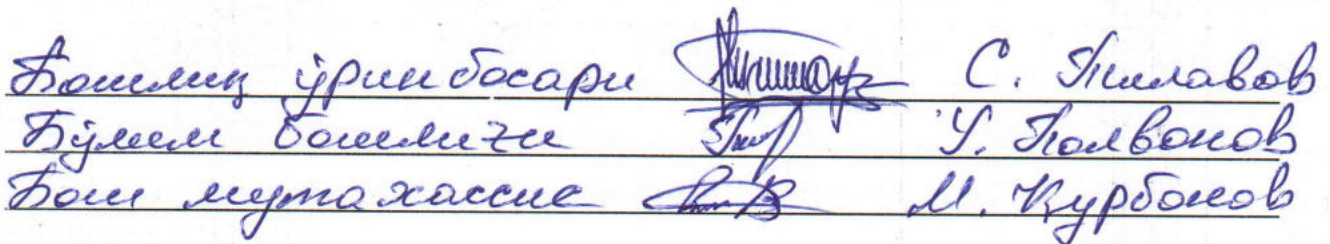 Бошлиқ ўринбосари С. Пилавов
Бўлим бошлиғи У. Полвонов
Бош мутахассис М. Қурбонов